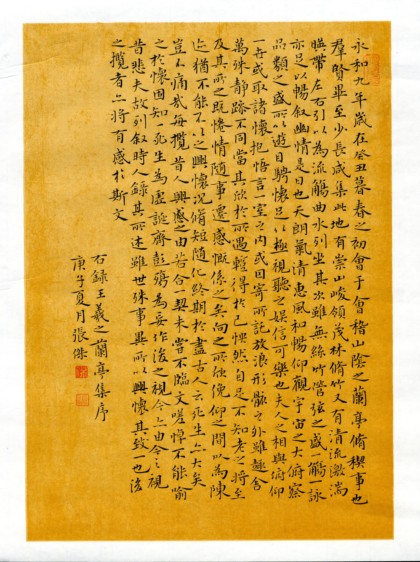 永和九年歲在癸丑暮春之初會于會稽山陰之蘭亭脩稧事也
羣賢畢至少長咸集此地有崇山峻領茂林脩竹又有清流激湍
暎帶左右引以為流觴曲水列坐其次雖無絲竹管弦之盛一觴一詠
亦足以暢叙幽情是日也天朗氣清惠風和暢仰觀宇宙之大俯察
品類之盛所以遊目騁懷足以極視聽之娛信可樂也夫人之相與俯仰
一世或取諸懷抱悟言一室之内或因寄所託放浪形骸之外雖趣舍
萬殊静躁不同當其欣於所遇暫得於己怏然自足不知老之將至
及其所之既惓情隨事遷感慨係之矣向之所欣俛仰之間以為陳
迹猶不能不以之興懷況脩短隨化終期於盡古人云死生亦大矣
豈不痛哉每攬昔人興感之由若合一契未嘗不臨文嗟悼不能喻
之於懷固知一死生為虛誕齊彭殤為妄作後之視今亦由今之視
昔悲夫故列叙時人錄其所述雖世殊事異所以興懷其致一也後
之攬者亦將有感於斯文
右録王羲之蘭亭集序
庚子夏月張傑